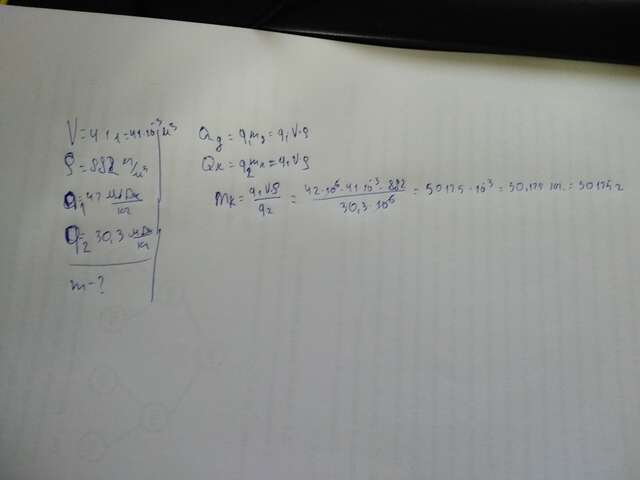 V = 41 л = 41·10⁻³ м³
ρ = 882 кг/м³
q₁ = 42 МДж/кг
q₂ = 30,3 МДж/кг
m - ?
Qд = q₁m₂ = q₁V·ρ
Qк = q₂mк = q₁Vρ
mк = q₁Vρ/q₂ = 42·10⁶·41·10⁻³·882/30,3·10⁶ = 50125·10⁻³ = 50,125 кг = 50125 г